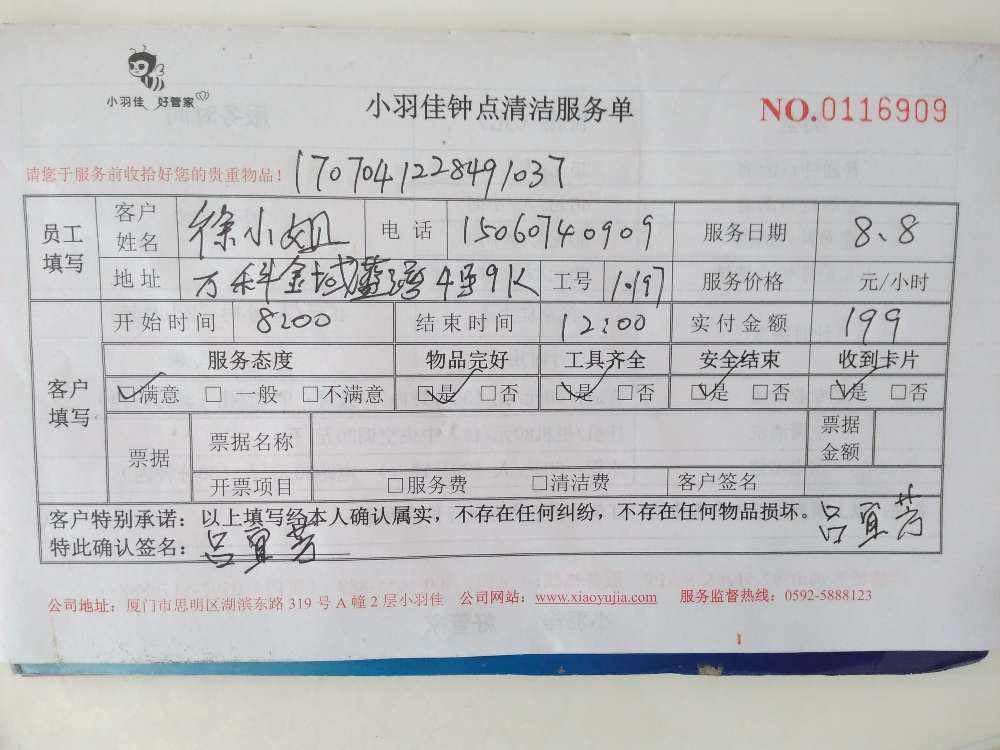 小羽佳 好管家
小羽佳钟点清洁服务单
NO.0116909
请您于服务前收拾好您的贵重物品！ 170704122849 1037
员工填写 客户姓名 徐小姐 电话 15060740909 服务日期 8、8
地址 万科金域 4 9K 工号 1197 服务价格 元/小时
开始时间 8:00 结束时间 12:00 实付金额 199
客户填写 服务态度 物品完好 工具齐全 安全结束 收到卡片
☑满意 □一般 □不满意 ☑是 □否 ☑是 □否 ☑是 □否 ☑是 □否
票据 票据名称 票据金额
开票项目 □服务费 □清洁费 客户签名
客户特别承诺：以上填写经本人确认属实，不存在任何纠纷，不存在任何物品损坏。 吕宜芳
特此确认签名：吕宜芳
公司地址：厦门市思明区湖滨东路 319 号 A 幢 2 层小羽佳 公司网站：www.xiaoyujia.com 服务监督热线：0592-5888123